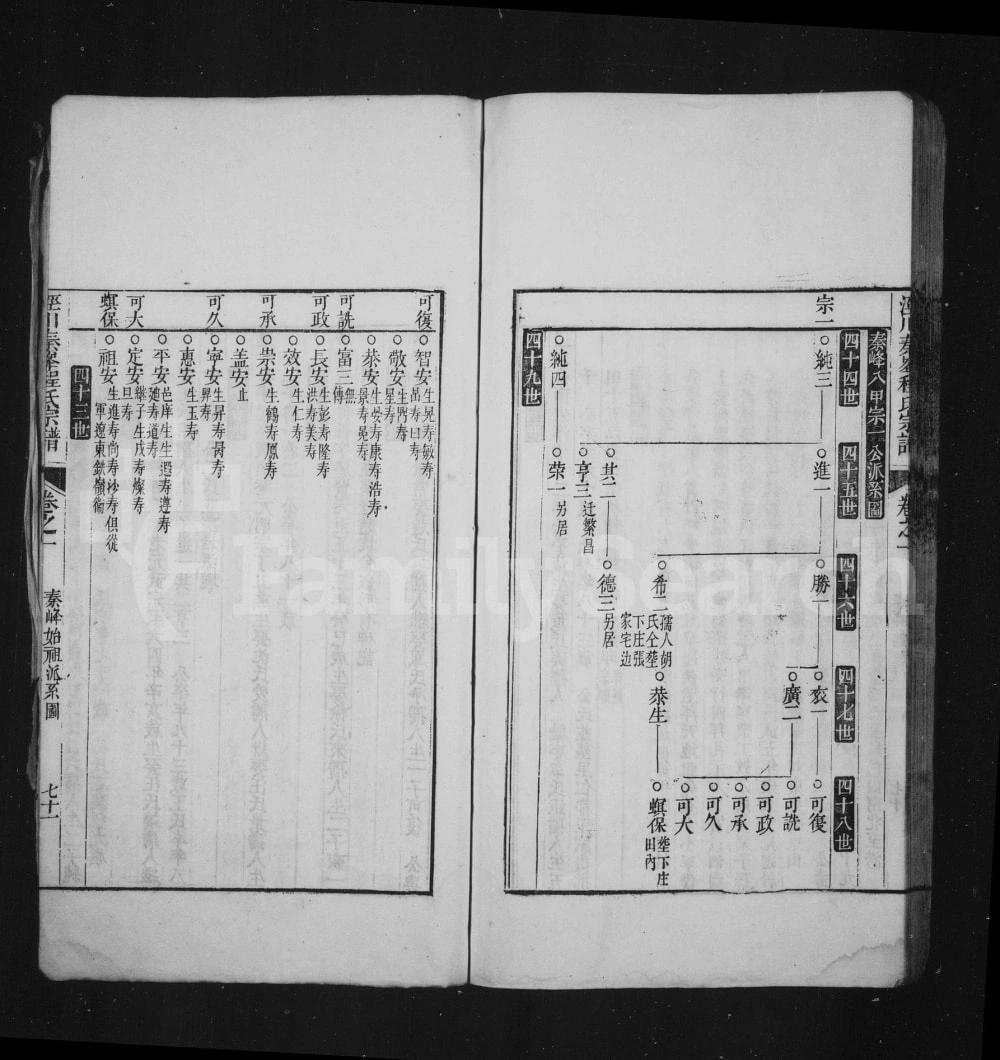 涇川秦峯程氏宗譜
卷之一
秦峰八甲宗一公派系圖
四十四世
四十五世
四十六世
四十七世
四十八世
宗一
純三
進一
勝一
衮一
可復
廣二
可詵
可政
可承
可久
可大
希二孺人胡氏仝塟下庄張家宅边
恭生
螟保塟下庄田內
共二
德三另居
亨三迁繁昌
純四
荣一另居
四十九世
可復
智安生晃寿敏寿
昺寿曰寿
敬安生興寿
星寿
恭安生奌寿康寿浩寿
景寿冕寿
可詵
富三無傳
可政
長安生彭寿隆寿
洪寿美寿
效安生仁寿
可承
崇安生鶴寿鳳寿
盖安止
可久
寧安生昇寿昺寿
昇寿
惠安生玉寿
可大
平安邑庠生生遐寿遵寿
廷寿道寿
定安繼子生戍寿燦寿
旦寿
螟保
祖安生進寿尚寿沙寿俱從
軍遼東鉄嶺衞
四十三世
涇川秦峯程氏宗譜
卷之一
秦峰始祖派系圖
七十一
FamilySearch